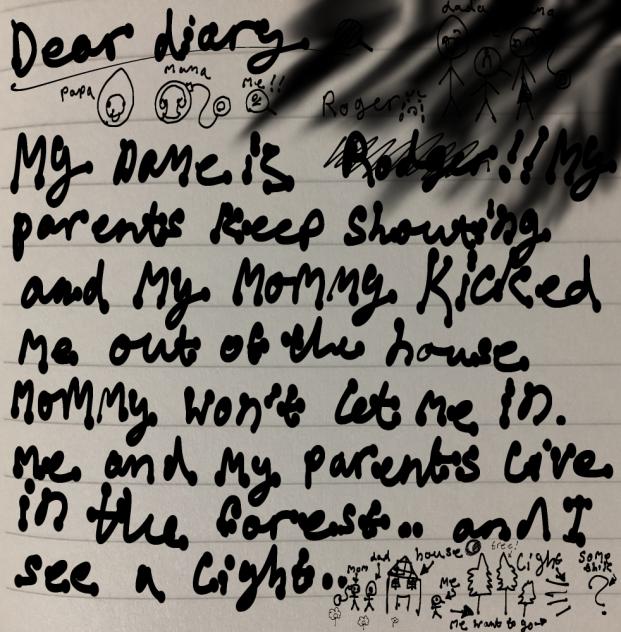 Dear diary
dada mama
papa mama Me!!
Roger
My name is Rodger!! My
parents keep shouting
and My Mommy Kicked
Me out of the house
Mommy won't let Me in.
Me and My parents Live
in the forest.. and I
see a Light..
Mom dad house Me tree! Light Some
thik
Me want to go